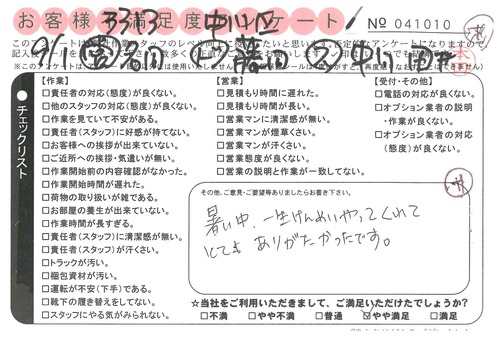 お客様満足度アンケート!
No 041010
3313
9/1
チェックリスト
【作業】
□責任者の対応(態度)が良くない。
□他のスタッフの対応(態度)が良くない。
□作業を見ていて不安がある。
□責任者(スタッフ)に好感が持てない。
□お客様への挨拶が出来ていない。
□ご近所への挨拶・気遣いが無い。
□作業開始前の内容確認がなかった。
□作業開始時間が遅れた。
□荷物の取り扱いが雑である。
□お部屋の養生が出来ていない。
□作業時間が長すぎる。
□責任者(スタッフ)に清潔感が無い。
□責任者(スタッフ)が汗くさい。
□トラックが汚い。
□梱包資材が汚い。
□運転が不安(下手)である。
□靴下の履き替えをしてない。
□スタッフにやる気がみられない。
【営業】
□見積もり時間に遅れた。
□見積もり時間が長い。
□営業マンに清潔感が無い。
□営業マンが煙草くさい。
□営業マンが汗くさい。
□営業態度が良くない。
□営業の説明と作業が一致してない。
【受付・その他】
□電話の対応が良くない。
□オプション業者の説明
・作業が良くない。
□オプション業者の対応
(態度)が良くない。
その他、ご意見・ご要望等ありましたらお書き下さい。
暑い中、一生けんめいやってくれて
とてもありがたかったです。
☆当社をご利用いただきまして、ご満足いただけたでしょうか?
□不満 □やや不満 □普通 ☑やや満足 □満足